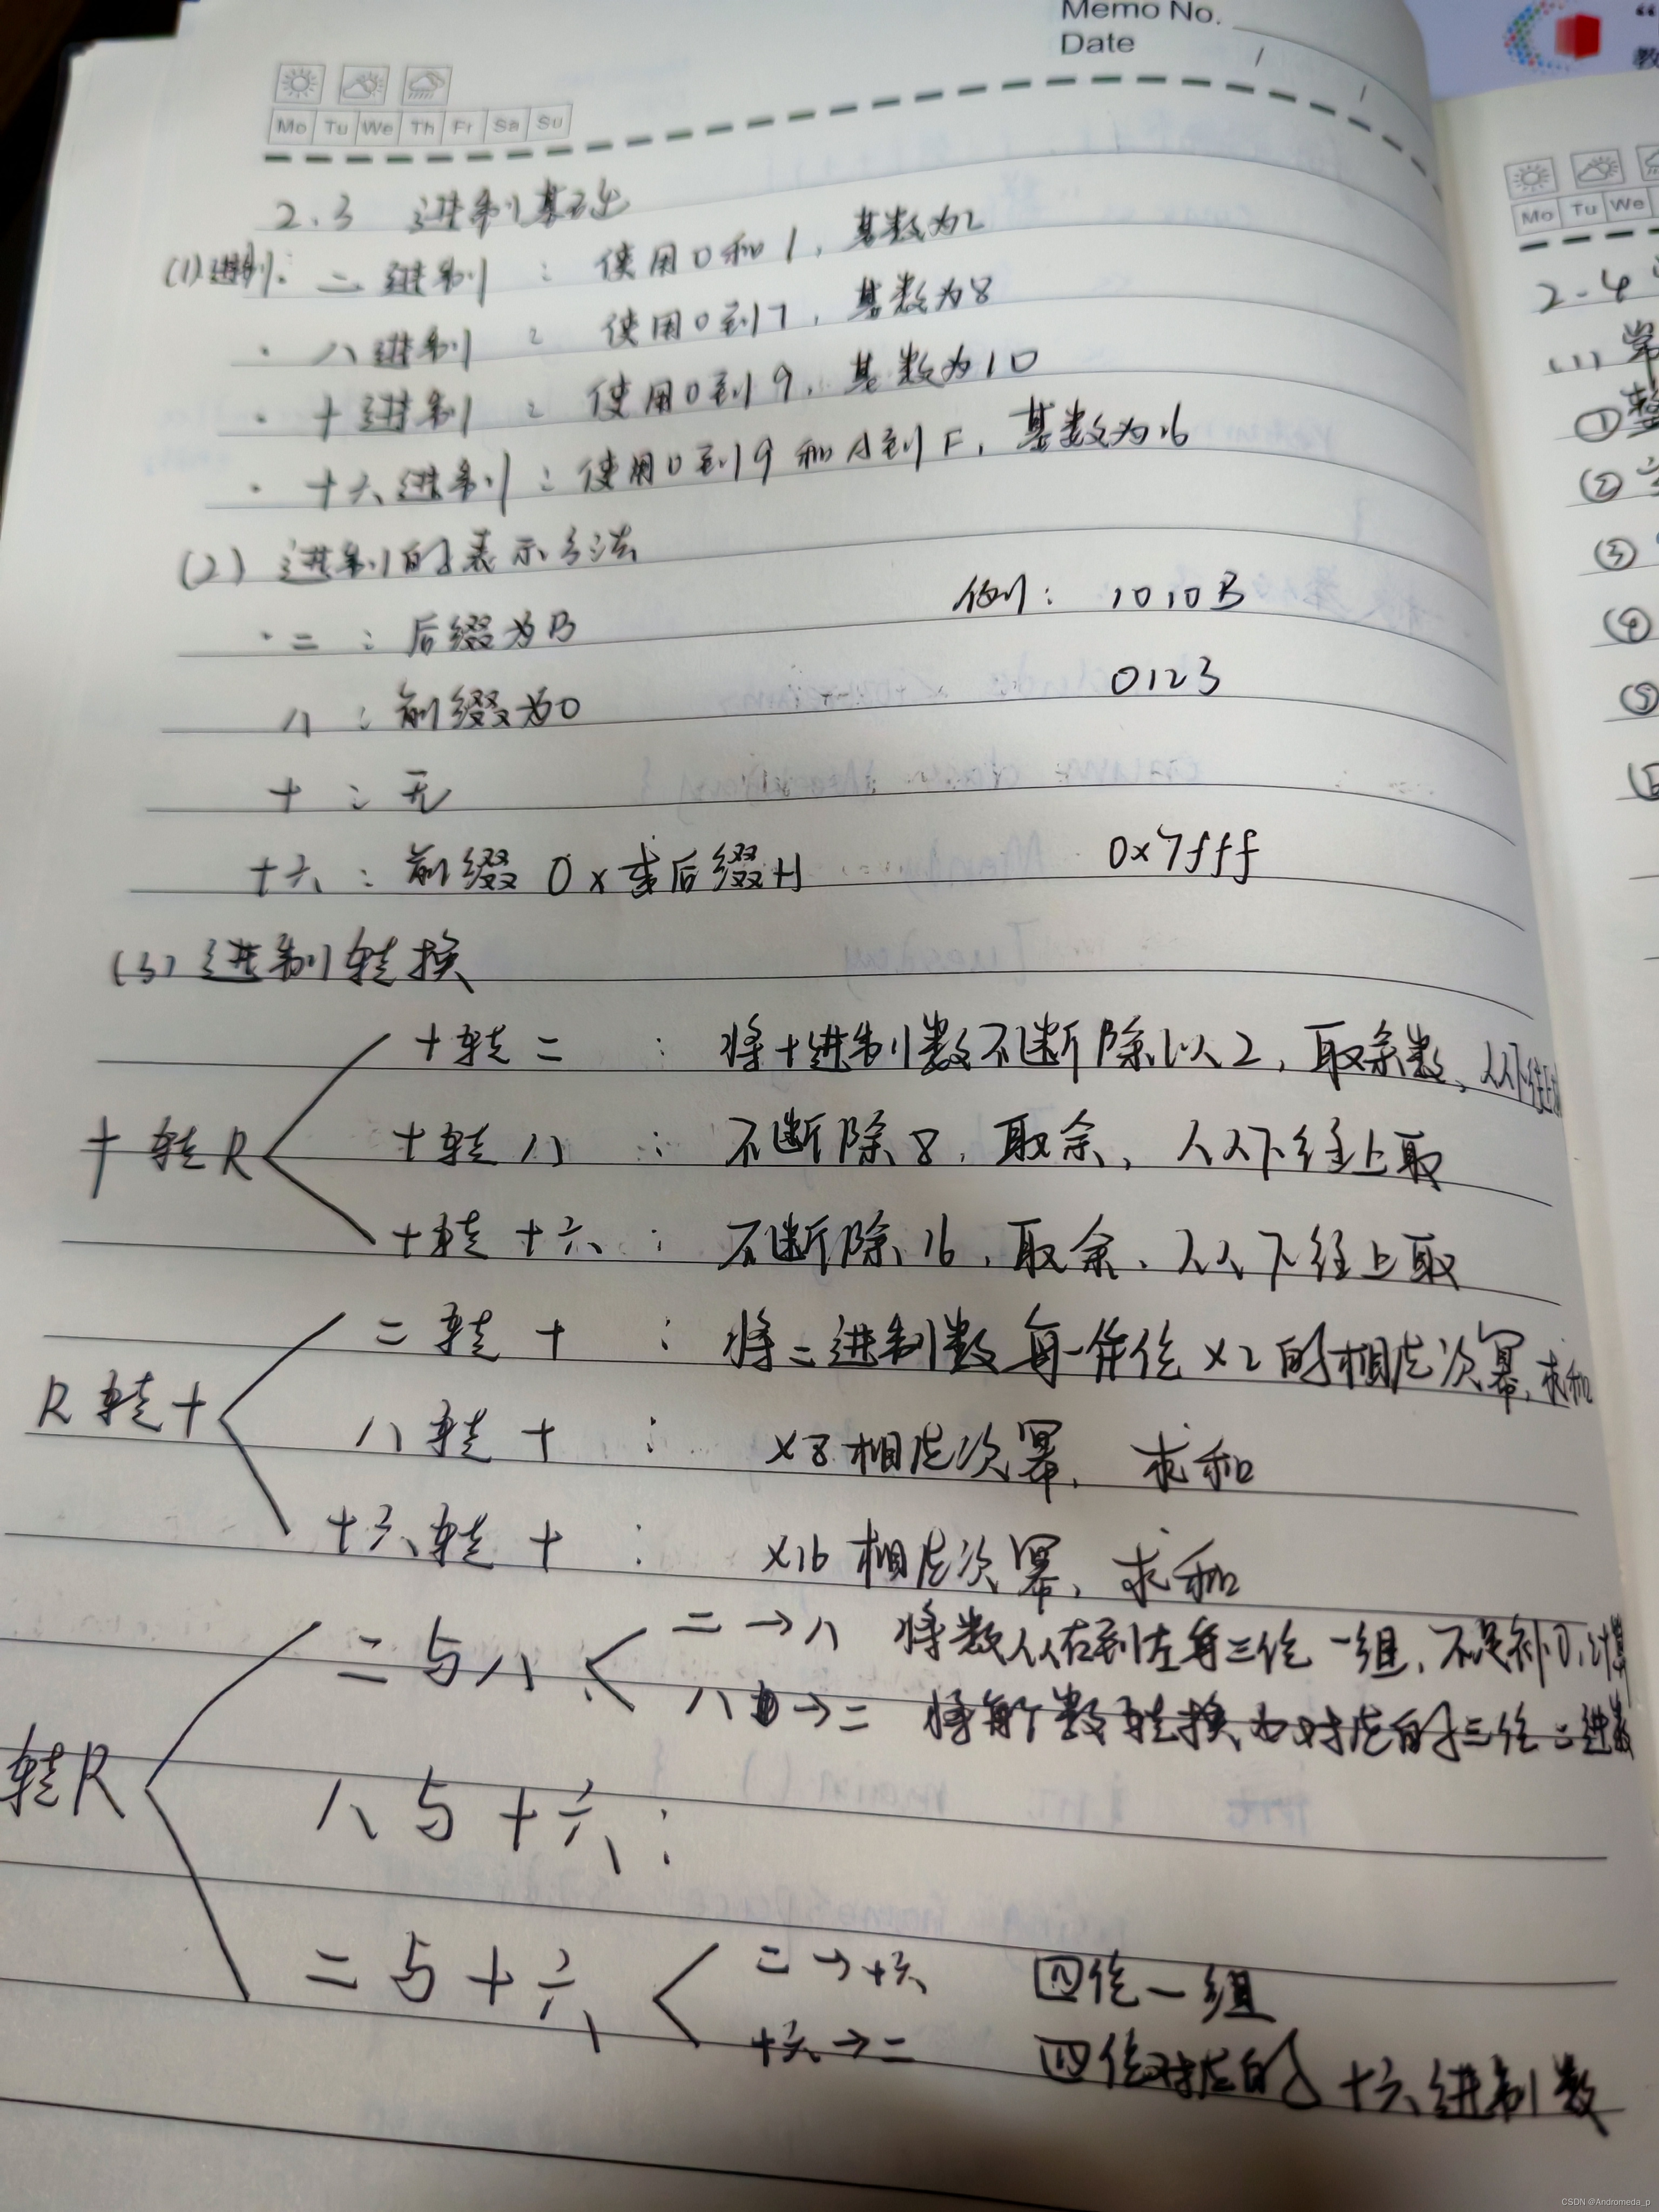 Memo No.
Date / /
Mo Tu We Th Fr Sa Su
2.3 进制基础
(1)进制: 二进制 : 使用0和1, 基数为2
· 八进制 : 使用0到7, 基数为8
· 十进制 : 使用0到9, 基数为10
· 十六进制 : 使用0到9和A到F, 基数为16
(2) 进制的表示方法
· 二 : 后缀为B 例: 1010B
八 : 前缀为0 0123
十 : 无
十六 : 前缀 0x或后缀H 0x7fff
(3) 进制转换
十转R
十转二 : 将十进制数不断除以2, 取余数, 从下往上取
十转八 : 不断除8, 取余, 从下往上取
十转十六 : 不断除16, 取余, 从下往上取
R转十
二转十 : 将二进制数每一位 ×2的相应次幂, 求和
八转十 : ×8相应次幂, 求和
十六转十 : ×16相应次幂, 求和
转R
二与八
二→八 将数从右到左每三位一组, 不足补0, 计算
八→二 将每个数转换为对应的三位二进数
八与十六:
二与十六
二→十六 四位一组
十六→二 四位对应的十六进制数
Mo Tu We
2-4
(1) 常
① 整
②
③
④
⑤
“
教
CSDN @Andromeda_p